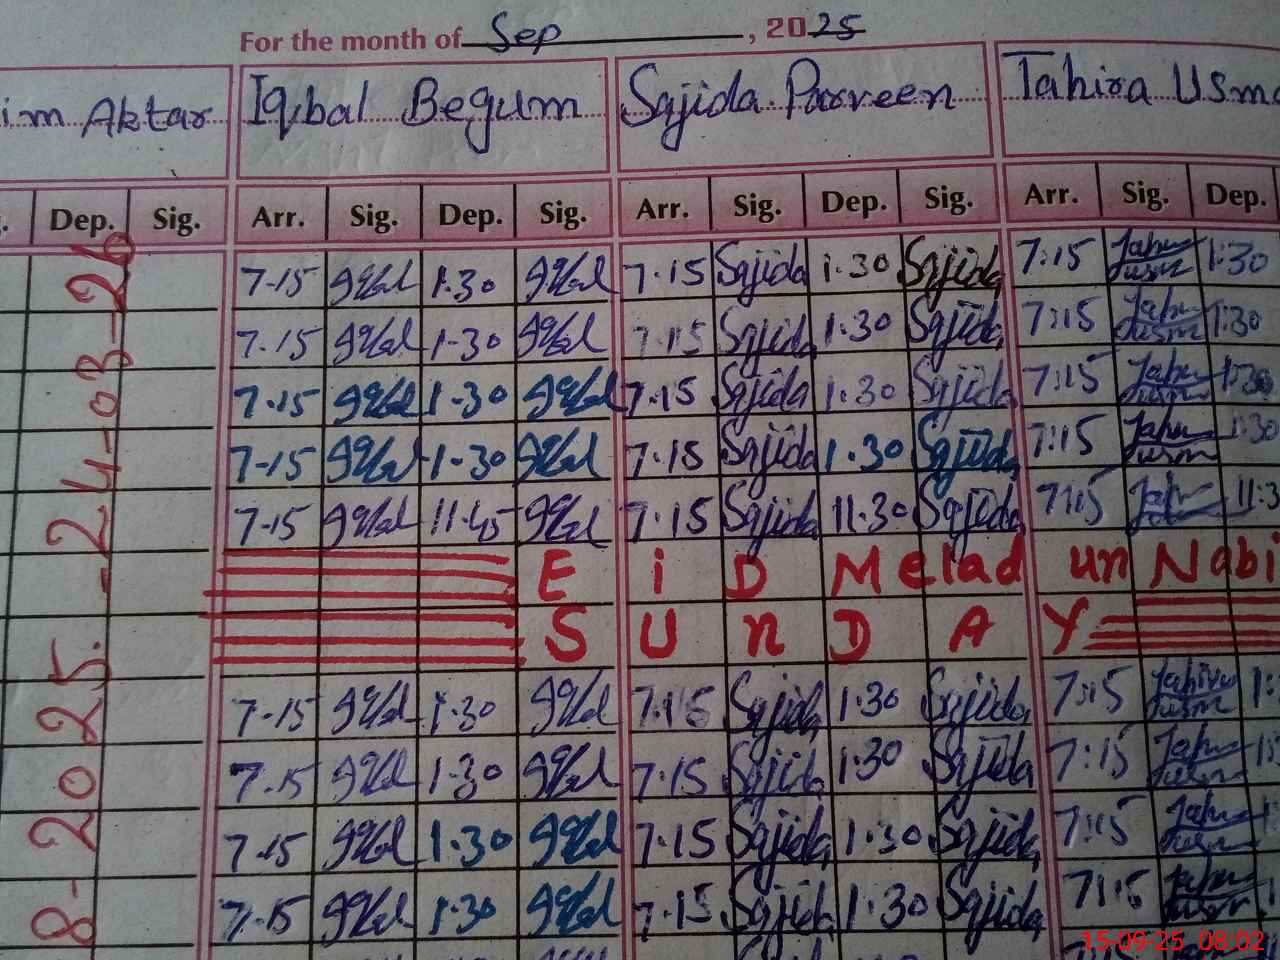 For the month of Sep, 2025
im Aktar Iqbal Begum Sajida Parveen Tahira Usma
Dep. Sig. Arr. Sig. Dep. Sig. Arr. Sig. Dep. Sig. Arr. Sig. Dep.
7-15 Iqbal 1.30 Iqbal 7.15 Sajida 1.30 Sajida 7:15 1:30
7.15 Iqbal 1-30 Iqbal 7.15 Sajida 1.30 Sajida 7:15 1:30
7.15 Iqbal 1-30 Iqbal 7.15 Sajida 1.30 Sajida 7:15 1:30
7-15 Iqbal 1-30 Iqbal 7.15 Sajida 1.30 Sajida 7:15 1:30
7-15 Iqbal 11.45 Iqbal 7.15 Sajida 11.30 Sajida 7:15 11:3
EiD Melad un Nabi
SUnDAY
7-15 Iqbal 1.30 Iqbal 7:15 Sajida 1.30 Sajida 7:15 1:
7.15 Iqbal 1.30 Iqbal 7.15 Sajida 1.30 Sajida 7:15
7.15 Iqbal 1.30 Iqbal 7.15 Sajida 1.30 Sajida 7:15
7-15 Iqbal 1.30 Iqbal 7.15 Sajida 1.30 Sajida 7:15
8-2025. - 24-03-26
15-09-25 08:02